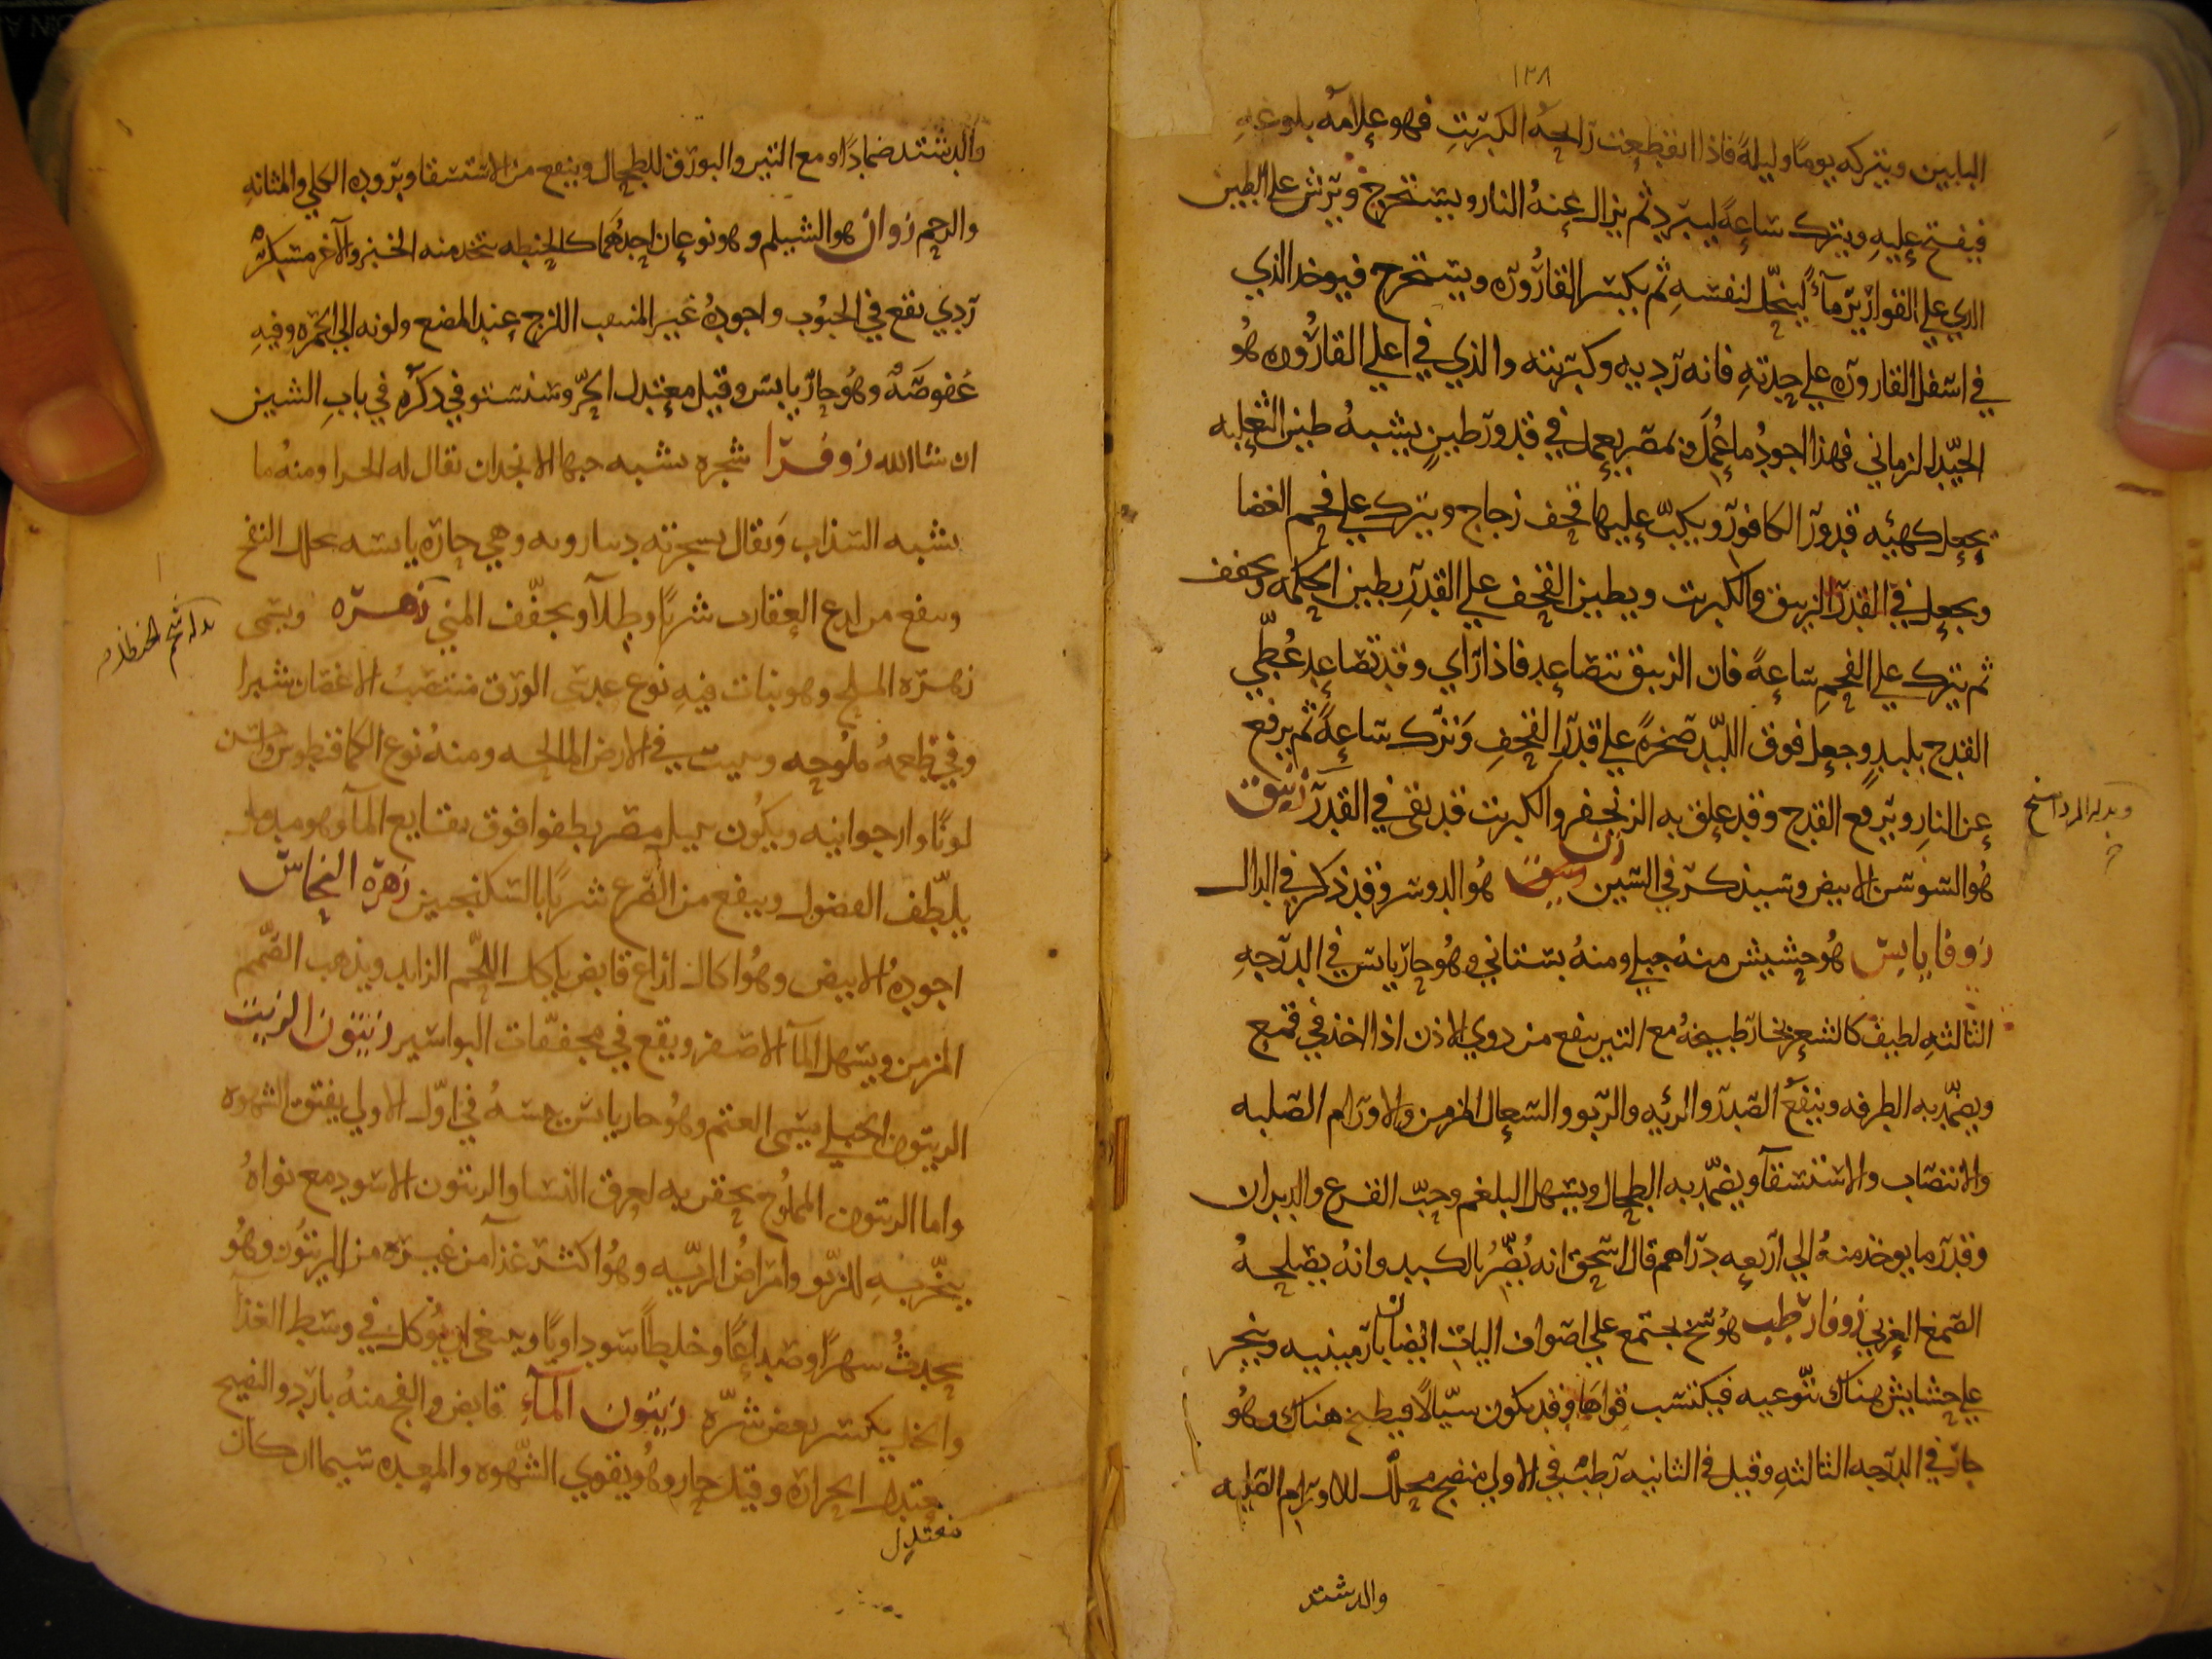 ١٢٨
البابين ويتركه يوما وليلة فاذا انقطعت رايحة الكبريت فهو علامة بلوغه
فيفتح عليه ويترك ساعة ليبرد ثم يزال عنه النار ويستخرج ويرش على الطين
الذي على القوارير مآء لينحل لنفسه ثم يكسر القارورة ويستخرج فيوخذ الذي
في اسفل القارورة على حدته فانه ردييه وكبريته والذي في اعلى القارورة هو
الجيد الرماني فهذا اجود ما عمل وبمصر يعمل في قدور طين يشبه طين الثعلبه
يجعل كهيئه قدور الكافور ويكب عليها قحف زجاج ويترك على فحم الغضا
ويجعل في القدر الزيبق والكبريت ويطين القحف على القدر بطين الحكمه ويجفف
ثم يترك على الفحم ساعة فان الزيبق يتصاعد فاذا راي وقد تصاعد غطي
القدح بلبد وجعل فوق اللبد صخرة على قدر القحف وترك ساعة ثم يرفع
عن النار ويرفع القدح وقد علق به الزنجفر والكبريت قد بقى في القدر زنبق
هو السوسن الابيض وسيذكر في السين زن هو الدوسر وقد ذكر في الدال
زوفا يابس هو حشيش منه جبلي ومنه بستاني وهو حار يابس في الدرجه
الثالثه لطيف كالشعر بخار طبيخه مع التين ينفع من دوي الاذن اذا اخذ في قمع
ويضمد به الطرفه وينفع الصدر والريه والربو والسعال المزمن والاورام الصلبه
والانتصاب والاستسقآ ويضمد به الطحال ويسهل البلغم وحب القرع والديدان
وقدر ما يوخذ منه الى اربعه دراهم قال اسحق انه يضر بالكبد وانه يصلحه
الصمغ العربي زوفا رطب هو وسخ يجتمع على اصواف اليات الضان بارمينيه وينجر
على حشايش هناك يتوعيه فيكتسب قواها وقد يكون سيالا فيطبخ هناك وهو
حار في الدرجه الثالثه وقيل في الثانيه رطب في الاولى منضج محلل للاورام الصلبه
والدشتد
وبدله المرداسنج
والدشتد ضمادا ومع التين والبورق للطحال وينفع من الاستسقا وبروده الكلى والمثانه
والرحم زوان هو الشيلم وهو نوعان احدهما كالحنطه يتخذ منه الخبز والآخر مسكر
ردي يقع في الحبوب واجوده غير المتعب اللزج عند المضع ولونه الى الحمره وفيه
عفوصة وهو حار يابس وقيل معتدل الحر وسنستوفي ذكره في باب الشين
ان شا الله زوفرا شجره يشبه حبها الانجدان يقال له الحزا ومنه ما
يشبه السذاب ويقال لسجرته دينارويه وهي حاره يابسه يحلل النفخ
وينفع من لدع العقارب شربا وطلآ ويجفف المني زهره ويسمى
زهره الملح وهو نبات فيه نوع عدسى الورق منتصب الاغصان شبرا
وفي طعمه ملوحه وينبت في الارض المالحه ومنه نوع الكمافيطوس واحسن
لونا وارجوانيه ويكون بنيل مصر يطفوا فوق نقايع المآ وهو
يلطف الفضول وينفع من الصرع شربا بالسكنجبين زهرة النحاس
اجوده الابيض وهو اكال لذاع قابض ياكل اللحم الزايد ويذهب الصمم
المزمن ويسهل المآ الاصفر ويقع في مجففات البواسير زيتون الزيت
الزيتون الجبلي يسمى العتم وهو حار يابس يبسه في اول الاولى يفتق الشهوه
واما الزيتون المملوح يحقن به لعرق النسا والزيتون الاسود مع نواه
يبخر به للربو وامراض الريه وهو اكثر غذآ من غيره من الزيتون وهو
يحدث سهرا وصداعا وخلطا سوداويا وينبغى ان يوكل في وسط الغذآ
والخل يكسر بعض شره زيتون المآء قابض والفج منه بارد والنضيج
معتدل الحرارة وقيل حار وهو يقوي الشهوه والمعده سيما ان كان
معتدل